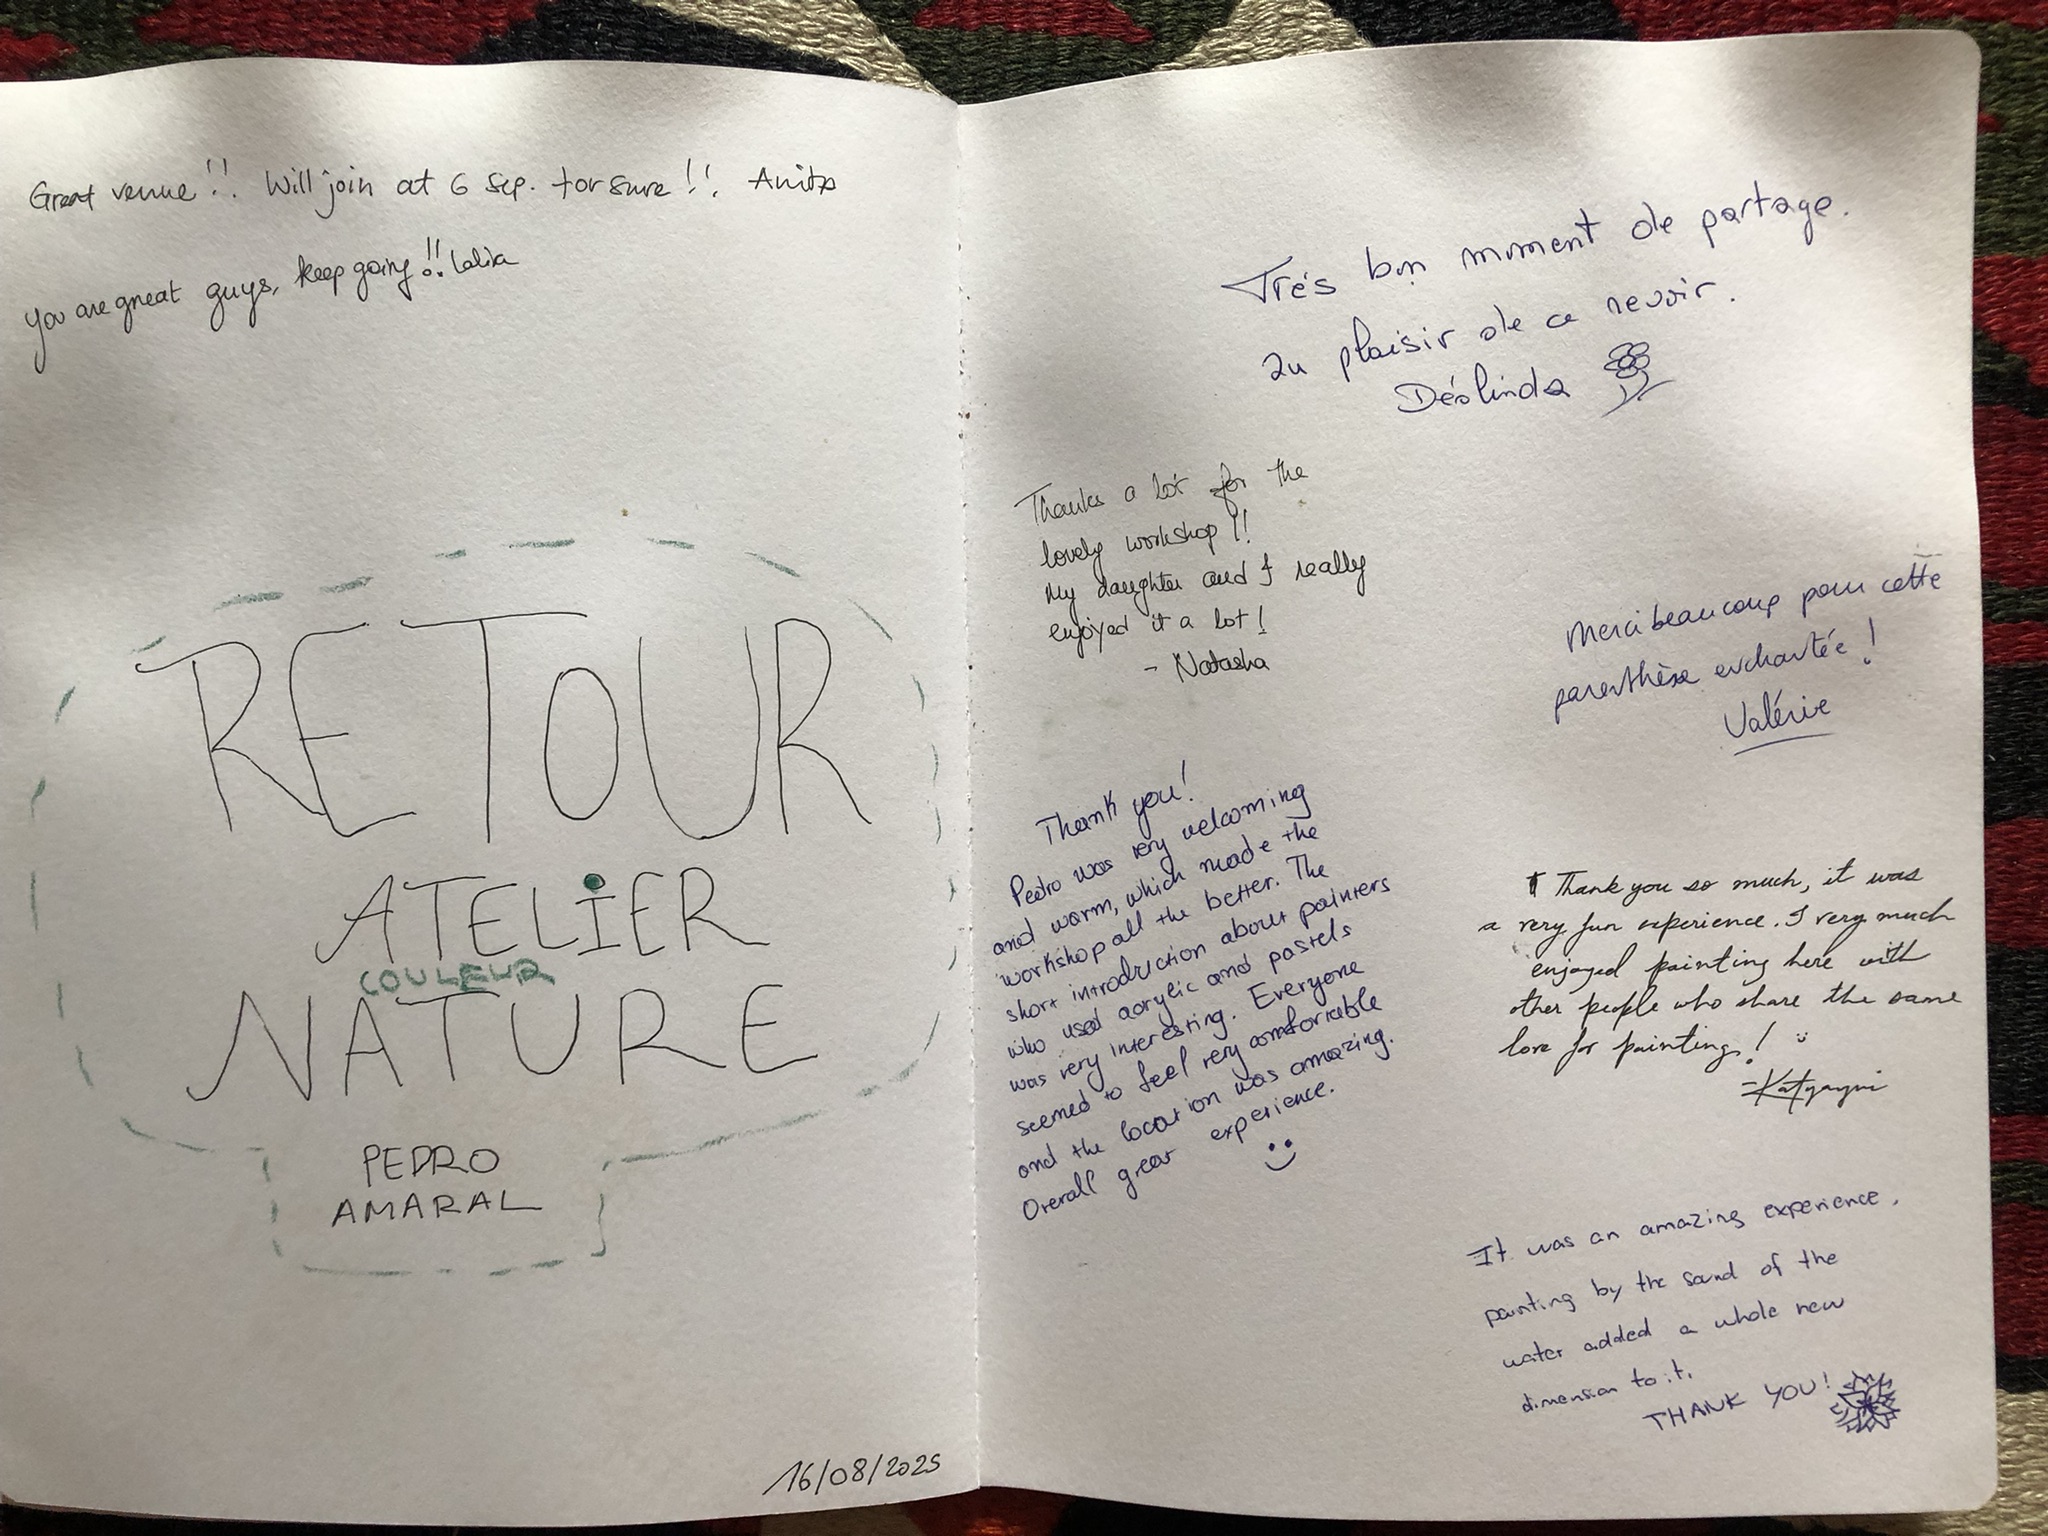 Great venue!! Will join at 6 Sep. for sure!! Anita
You are great guys, keep going!! Lalia
RETOUR
ATELIER
COULEUR
NATURE
PEDRO
AMARAL
16/08/2025
Très bon moment de partage.
au plaisir de ce revoir.
Déolinda
Thanks a lot for the
lovely workshop!!
My daughter and I really
enjoyed it a lot!
- Natasha
Merci beaucoup pour cette
parenthèse enchantée!
Valérie
Thank you!
Pedro was very welcoming
and warm, which made the
workshop all the better. The
short introduction about painters
who used acrylic and pastels
was very interesting. Everyone
seemed to feel very comfortable
and the location was amazing.
Overall great experience.
Thank you so much, it was
a very fun experience. I very much
enjoyed painting here with
other people who share the same
love for painting!
- Katyayni
It was an amazing experience,
painting by the sound of the
water added a whole new
dimension to it.
THANK YOU!